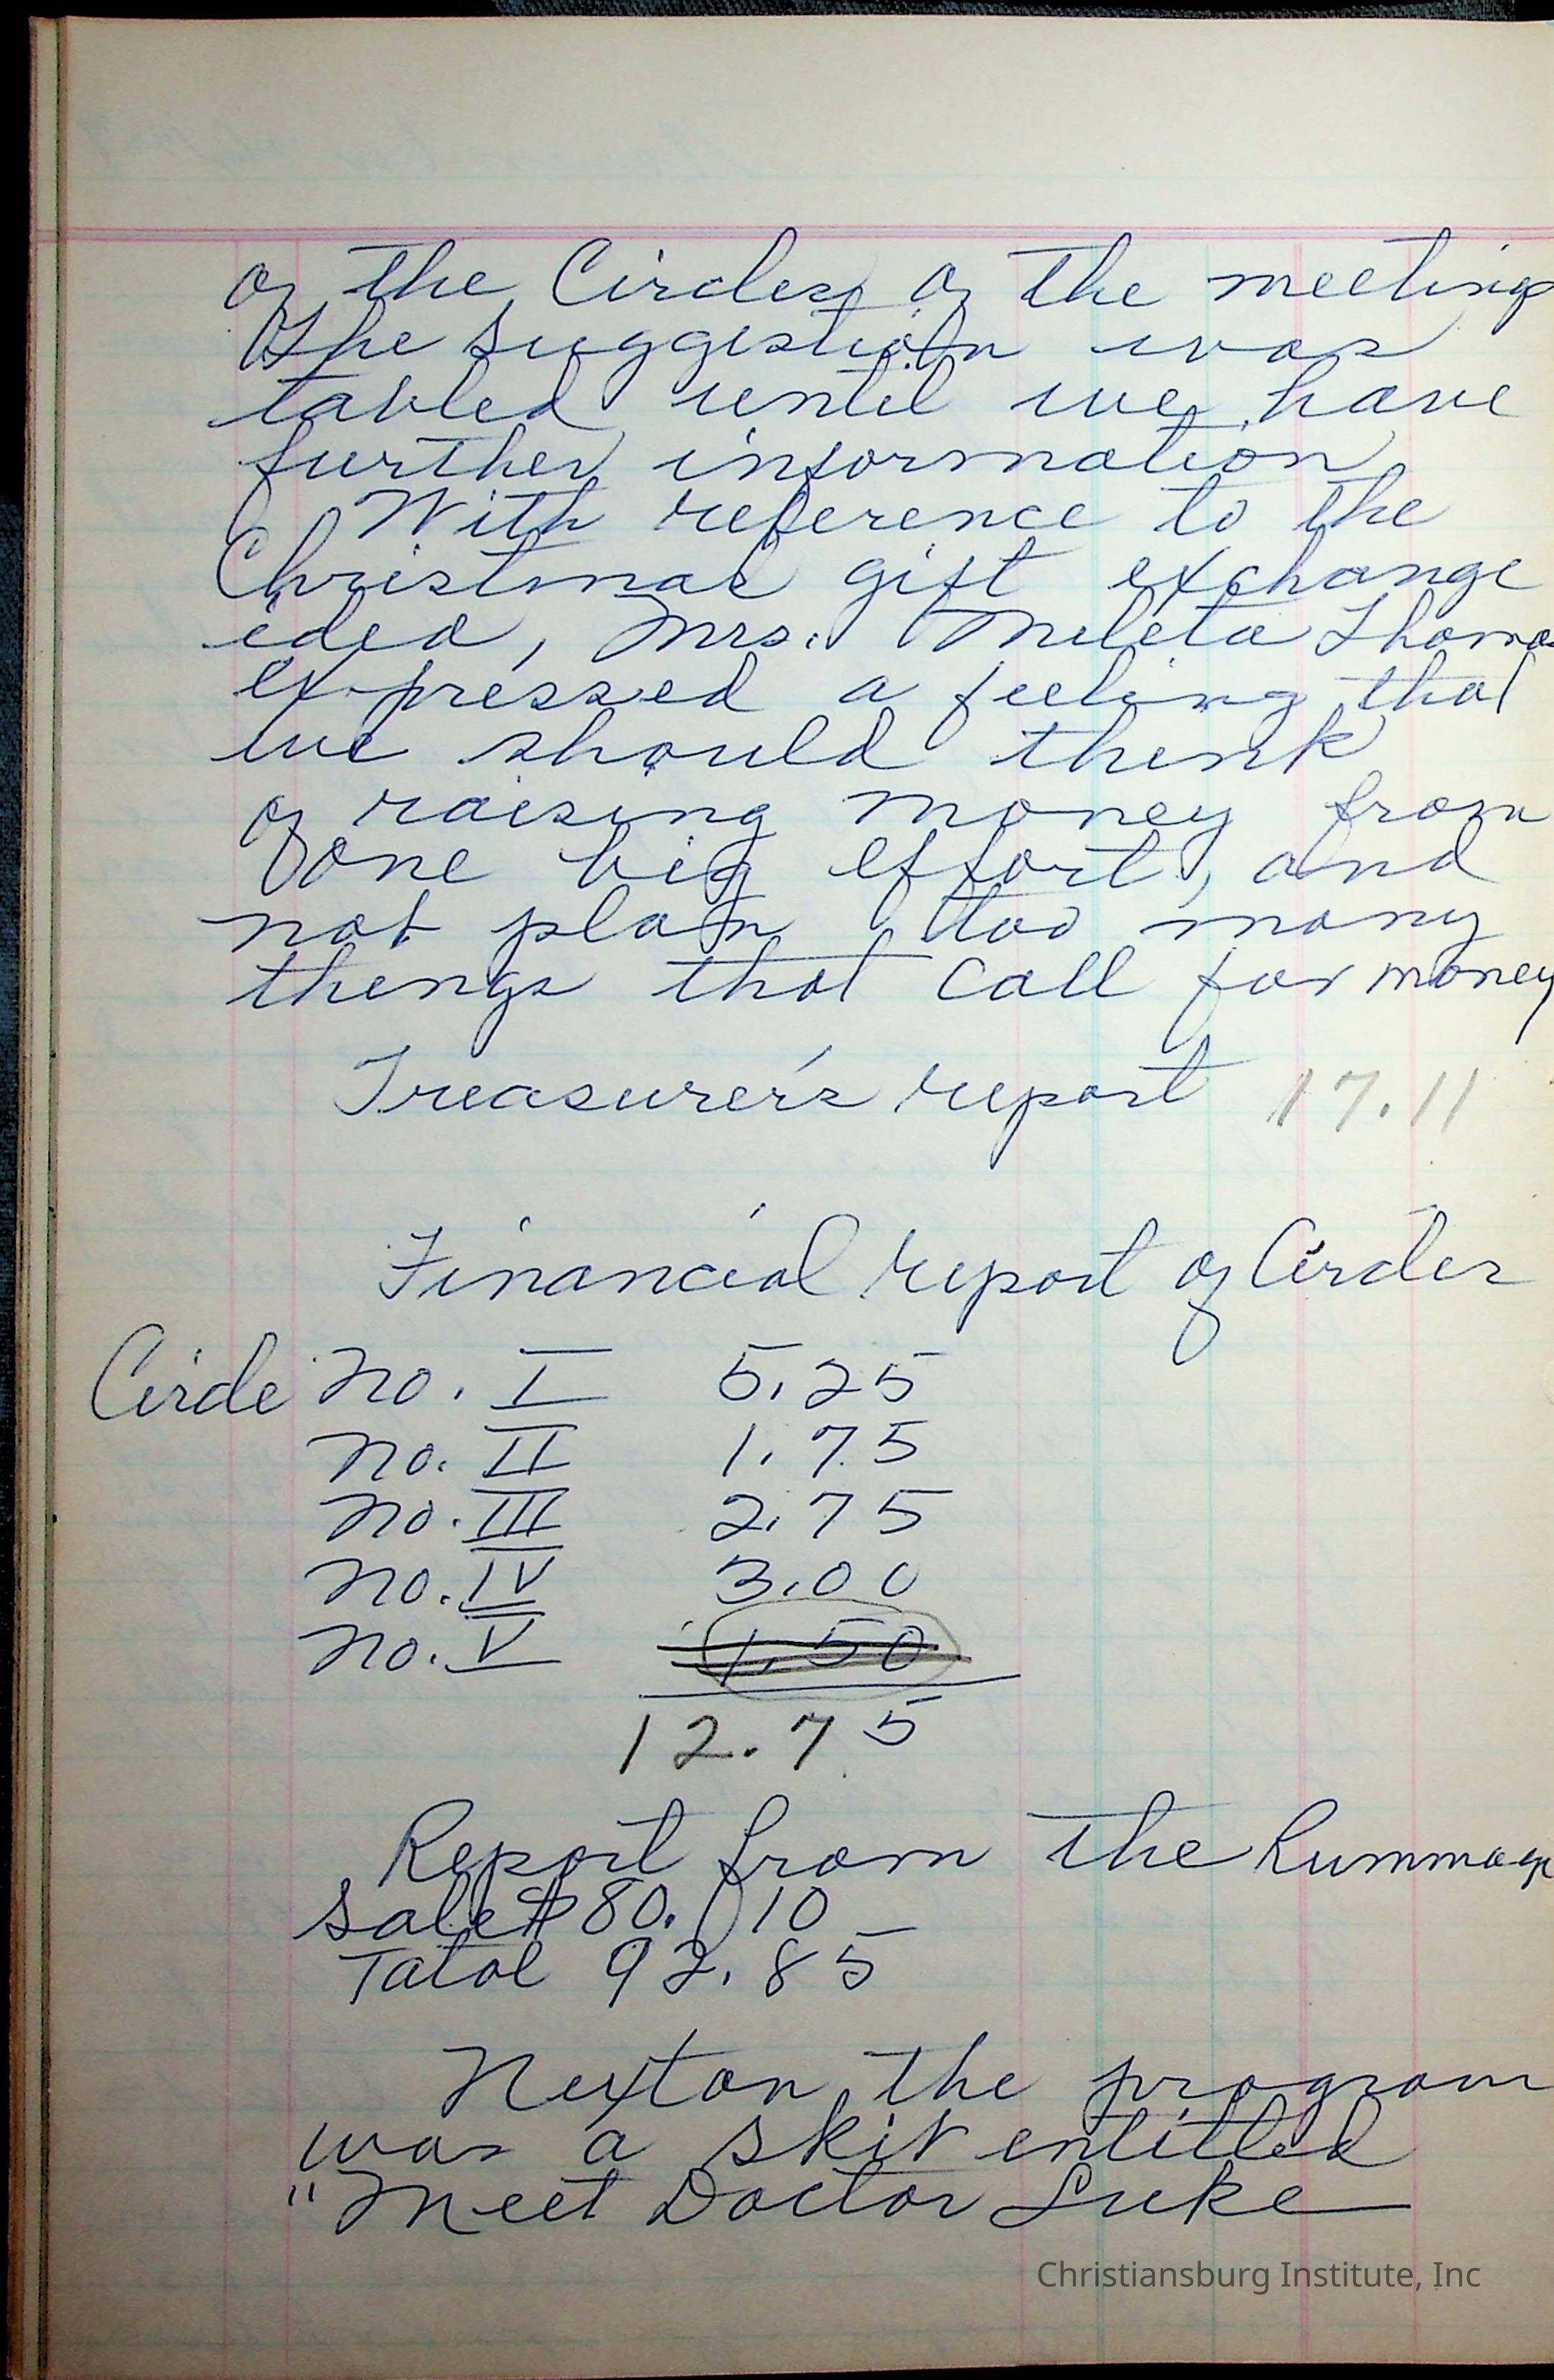 of the Circles of the meeting
The suggestion was
tabled until we have
further information
With reference to the
Christmas gift exchange
idea, Mrs. Thomas
expressed a feeling that
we should think
of raising money from
one big effort, and
not plan too many
things that call for money
Treasurer's report 17.11
Financial report of Circles
Circle No. I 5.25
No. II 1.75
No. III 2.75
No. IV 3.00
No. V 1.50
12.75
Report from the Rummage
Sale $80.10
Total 92.85
Next on the program
was a skit entitled
"Meet Doctor Luke
Christiansburg Institute, Inc